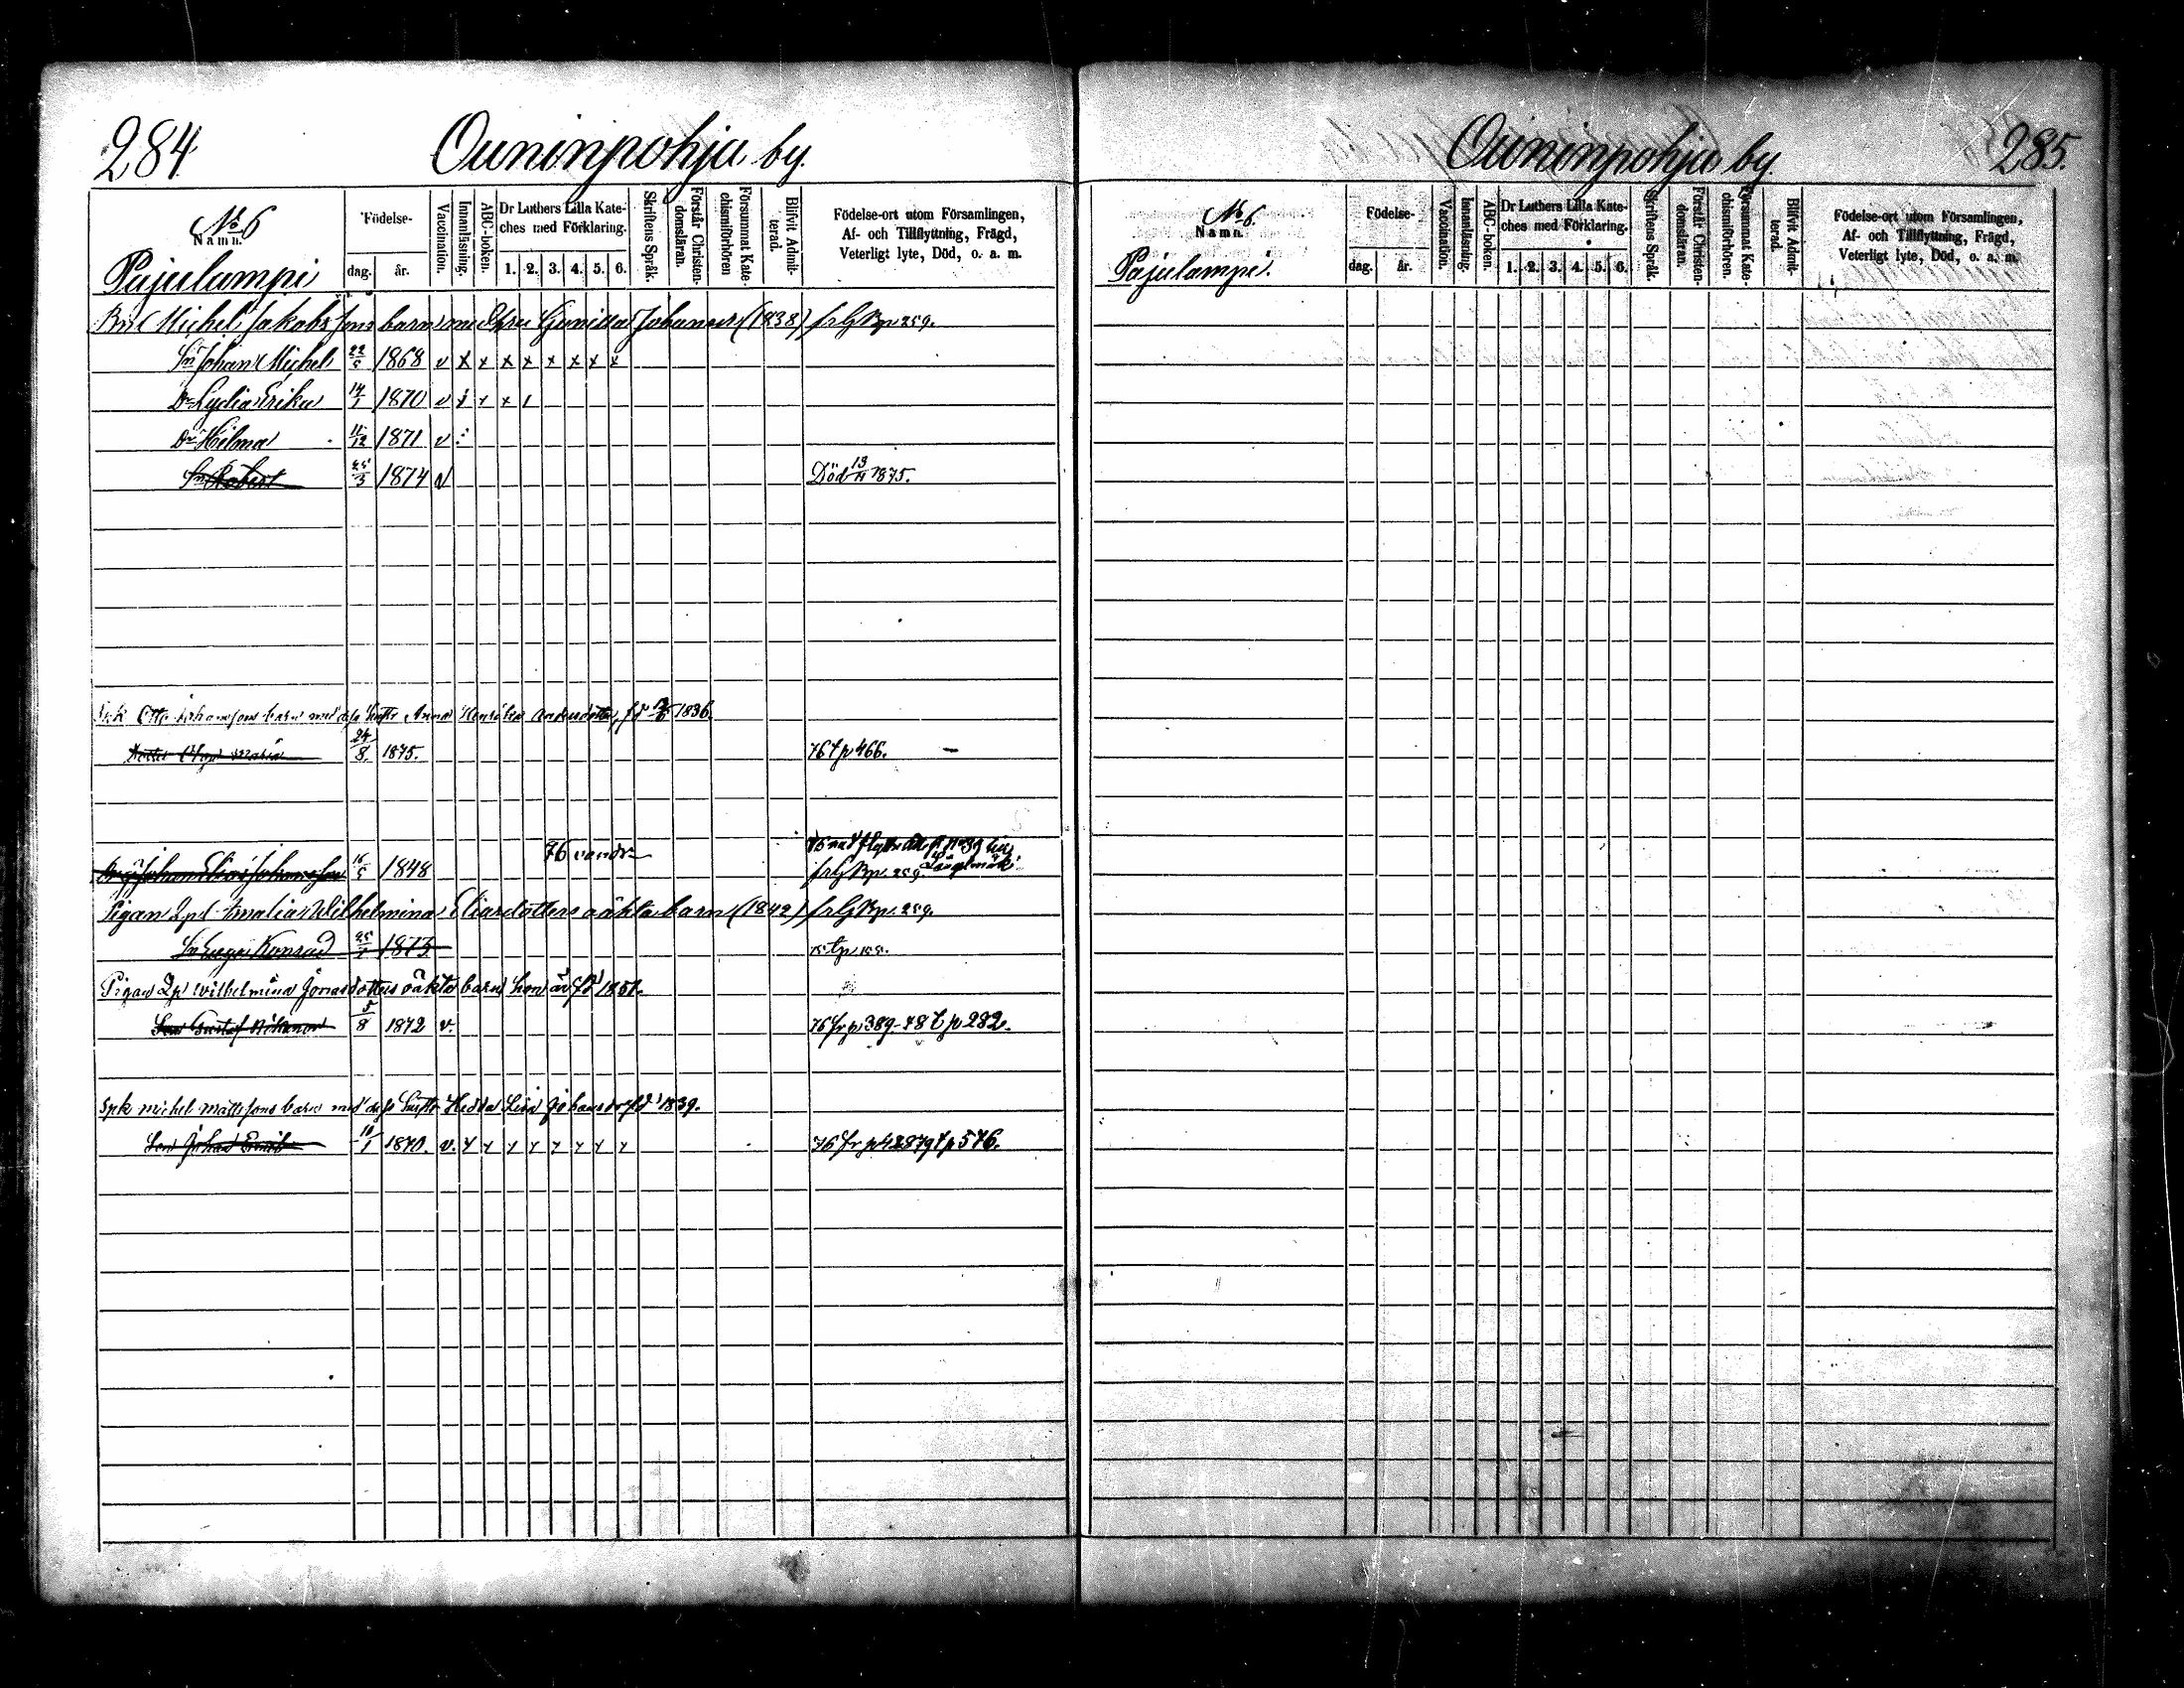 284
Ouninpohja by.
No 6
Namn.
Pajulampi
Födelse-
dag.
år.
Vaccination.
Innanläsning.
ABC-boken.
Dr Luthers Lilla Kate-
ches med Förklaring.
1. 2. 3. 4. 5. 6.
Skriftens Språk.
Förstår Christen-
domsläran.
Försummat Kate-
chismiförhören
Blifvit Admit-
terad.
Födelse-ort utom Församlingen,
Af- och Tillflyttning, Frägd,
Veterligt lyte, Död, o. a. m.
Michel Jakobssons barn med Gunilla Johansdr (1838) frLBp 259.
Sn Johan Michel 22/5 1868 v x x x x x x x x
Dr Lydia Erika 14/1 1870 v
Dr Hilma 11/12 1871 v
Sn Robert 25/3 1874 v Död 13/11 1875.
Spk Otto Johanssons barn med dess hustr Anna Andersdotter, fd 1836.
Maria 24/8 1875. 76 t p 466.
Johan Elias Johansson 16/5 1848 76
frLBp. 259. Längelmäki
Pigan Lpl Amalia Wilhelmina Eliasdotters oäkta barn (1842) frLBp. 259.
Sn Konrad 25/ 1873 75 t p 155.
Pigan Lp Wilhelmina Jonasdotters oäkta barn hon är fd 1851.
Son Gustaf 5/8 1872 v. 76 fr p 389. 78 t p 282.
Spk Michel Mattssons barn med dess hustr Hedda Lisa Johansdr fd 1839.
Son Johan Emil 10/1 1870. v. 76 fr p 428 79 t p 576.
Ouninpohja by.
285.
No 6.
Namn.
Pajulampi.
Födelse-
dag.
År.
Vaccination.
Innanläsning.
ABC-boken.
Dr Luthers Lilla Kate-
ches med Förklaring.
1. 2. 3. 4. 5. 6.
Skriftens Språk.
Förstår Christen-
domsläran.
Försummat Kate-
chismiförhören.
Blifvit Admit-
terad.
Födelse-ort utom Församlingen,
Af- och Tillflyttning, Frägd,
Veterligt lyte, Död, o. a. m.